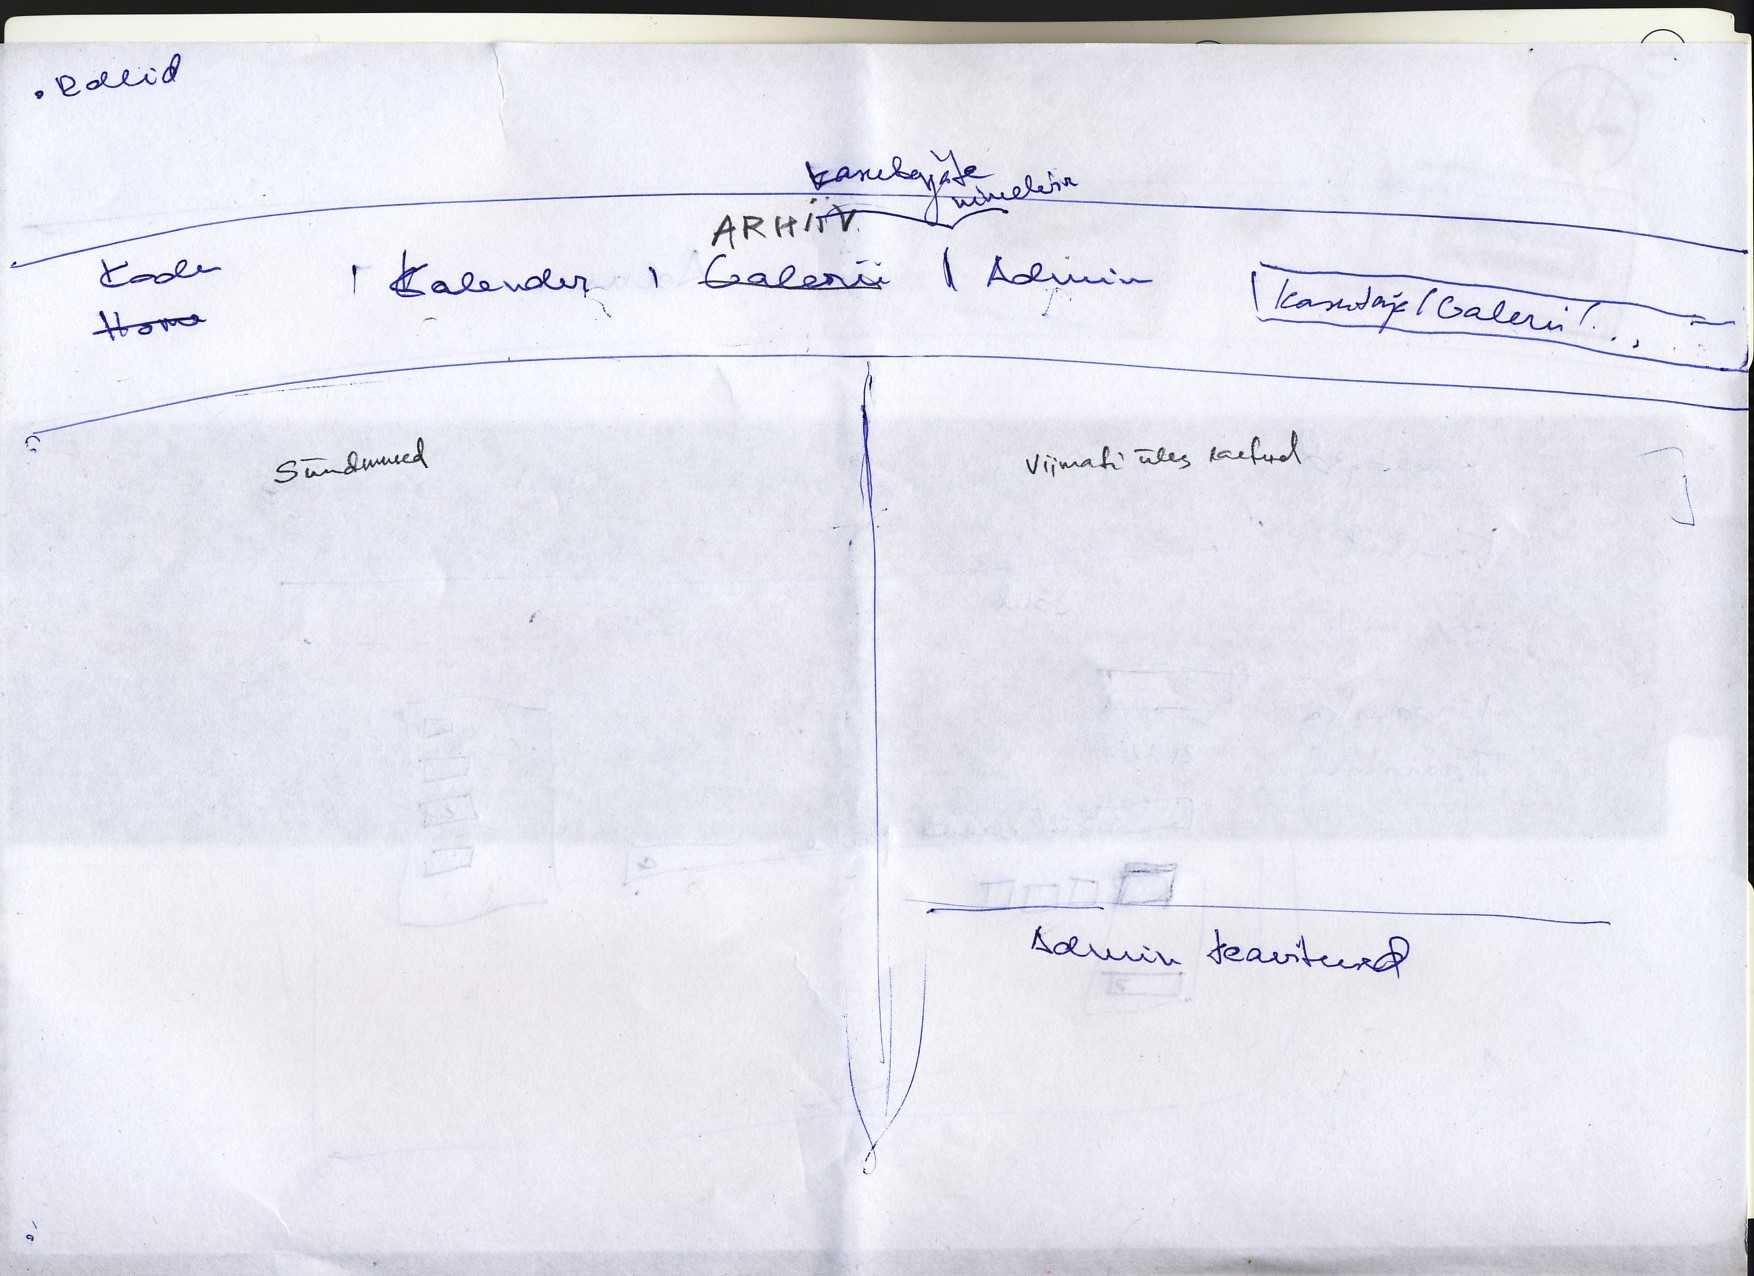 . Rollid
Kasutajate
nimekiri
ARHIIV
Kodu | Kalender | Galerii | Admin | Kasutaja / Galerii / . . .
Home
Sündmused
Viimati üles laetud
Admin teavitused